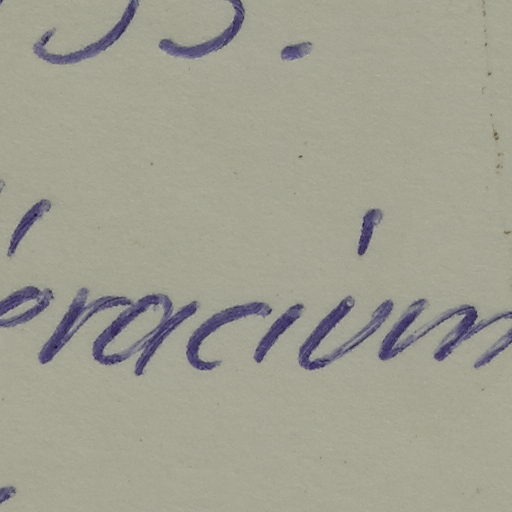 33.
eracium